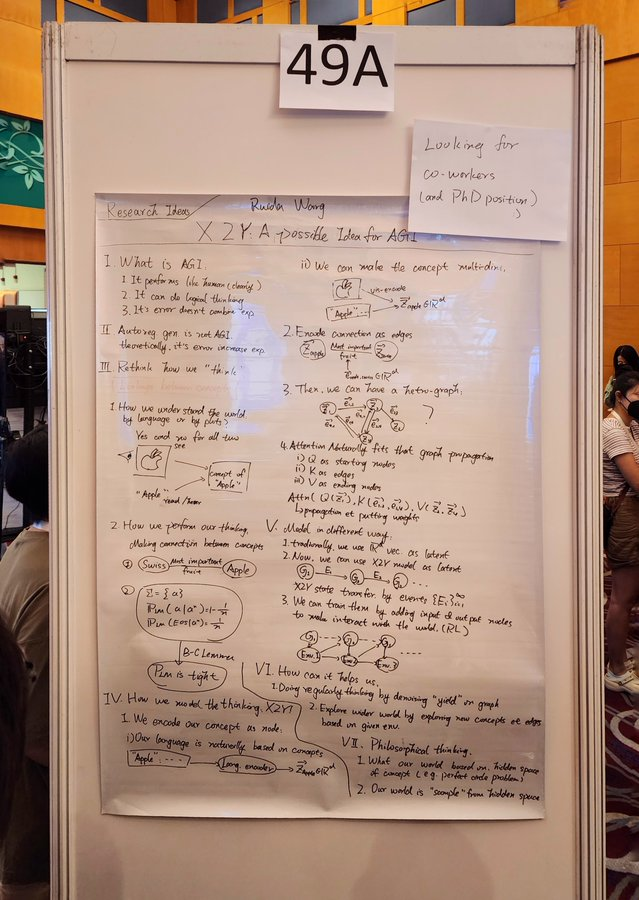 49A
Looking for
co-workers
(and PhD position)
Research Ideas
Ruida Wang
X2Y: A possible Idea for AGI
I. What is AGI:
1. It performs like human (clearly)
2. It can do logical thinking
3. It's error doesn't combine exp.
II Autoreg. gen. is not AGI.
theoretically, it's error increase exp.
III. Rethink how we "think"
1. How we understand the world.
by language or by plots?
Yes and no for all two
see
concept of
"Apple"
"Apple" read/hear
2. How we perform our thinking,
Making connection between concepts
① Swiss Most important fruit Apple
②
Σ = {a}
B-C Lemma
PLM is tight
IV. How we model the thinking, X2Y?
1. We encode our concept as node:
i) Our language is naturally based on concepts
"Apple": ---- Lang. encoder
ii) We can make the concept multi-dim.
vis-encode
"Apple": ---
2. Encode connection as edges
Most important
fruit
3. Then, we can have a hetro-graph:
?
4. Attention Naturally fits that graph propagation
i) Q as starting nodes
ii) K as edges
iii) V as ending nodes
propagation et putting weights
V. Model in different way:
1. traditionally, we use ℝᵈ vec. as latent
2. Now, we can use X2Y model as latent
G₁ E₁ G₂ E₂ G₃ ...
X2Y state transfer by events {Eᵢ}
3. We can train them by adding input & output nodes
to make interact with the world. (RL)
G₁ G₂ G₃
Env.1 Env.2 Env.3
VI. How can it helps us.
1. Doing regularly thinking by denoising "yield" on graph
2. Explore wider world by exploring new concepts et edges
based on given env.
VII. Philosophical thinking.
1. What our world based on: hidden space
of concept (e.g. perfect circle problem)
2. Our world is "sample" from hidden space